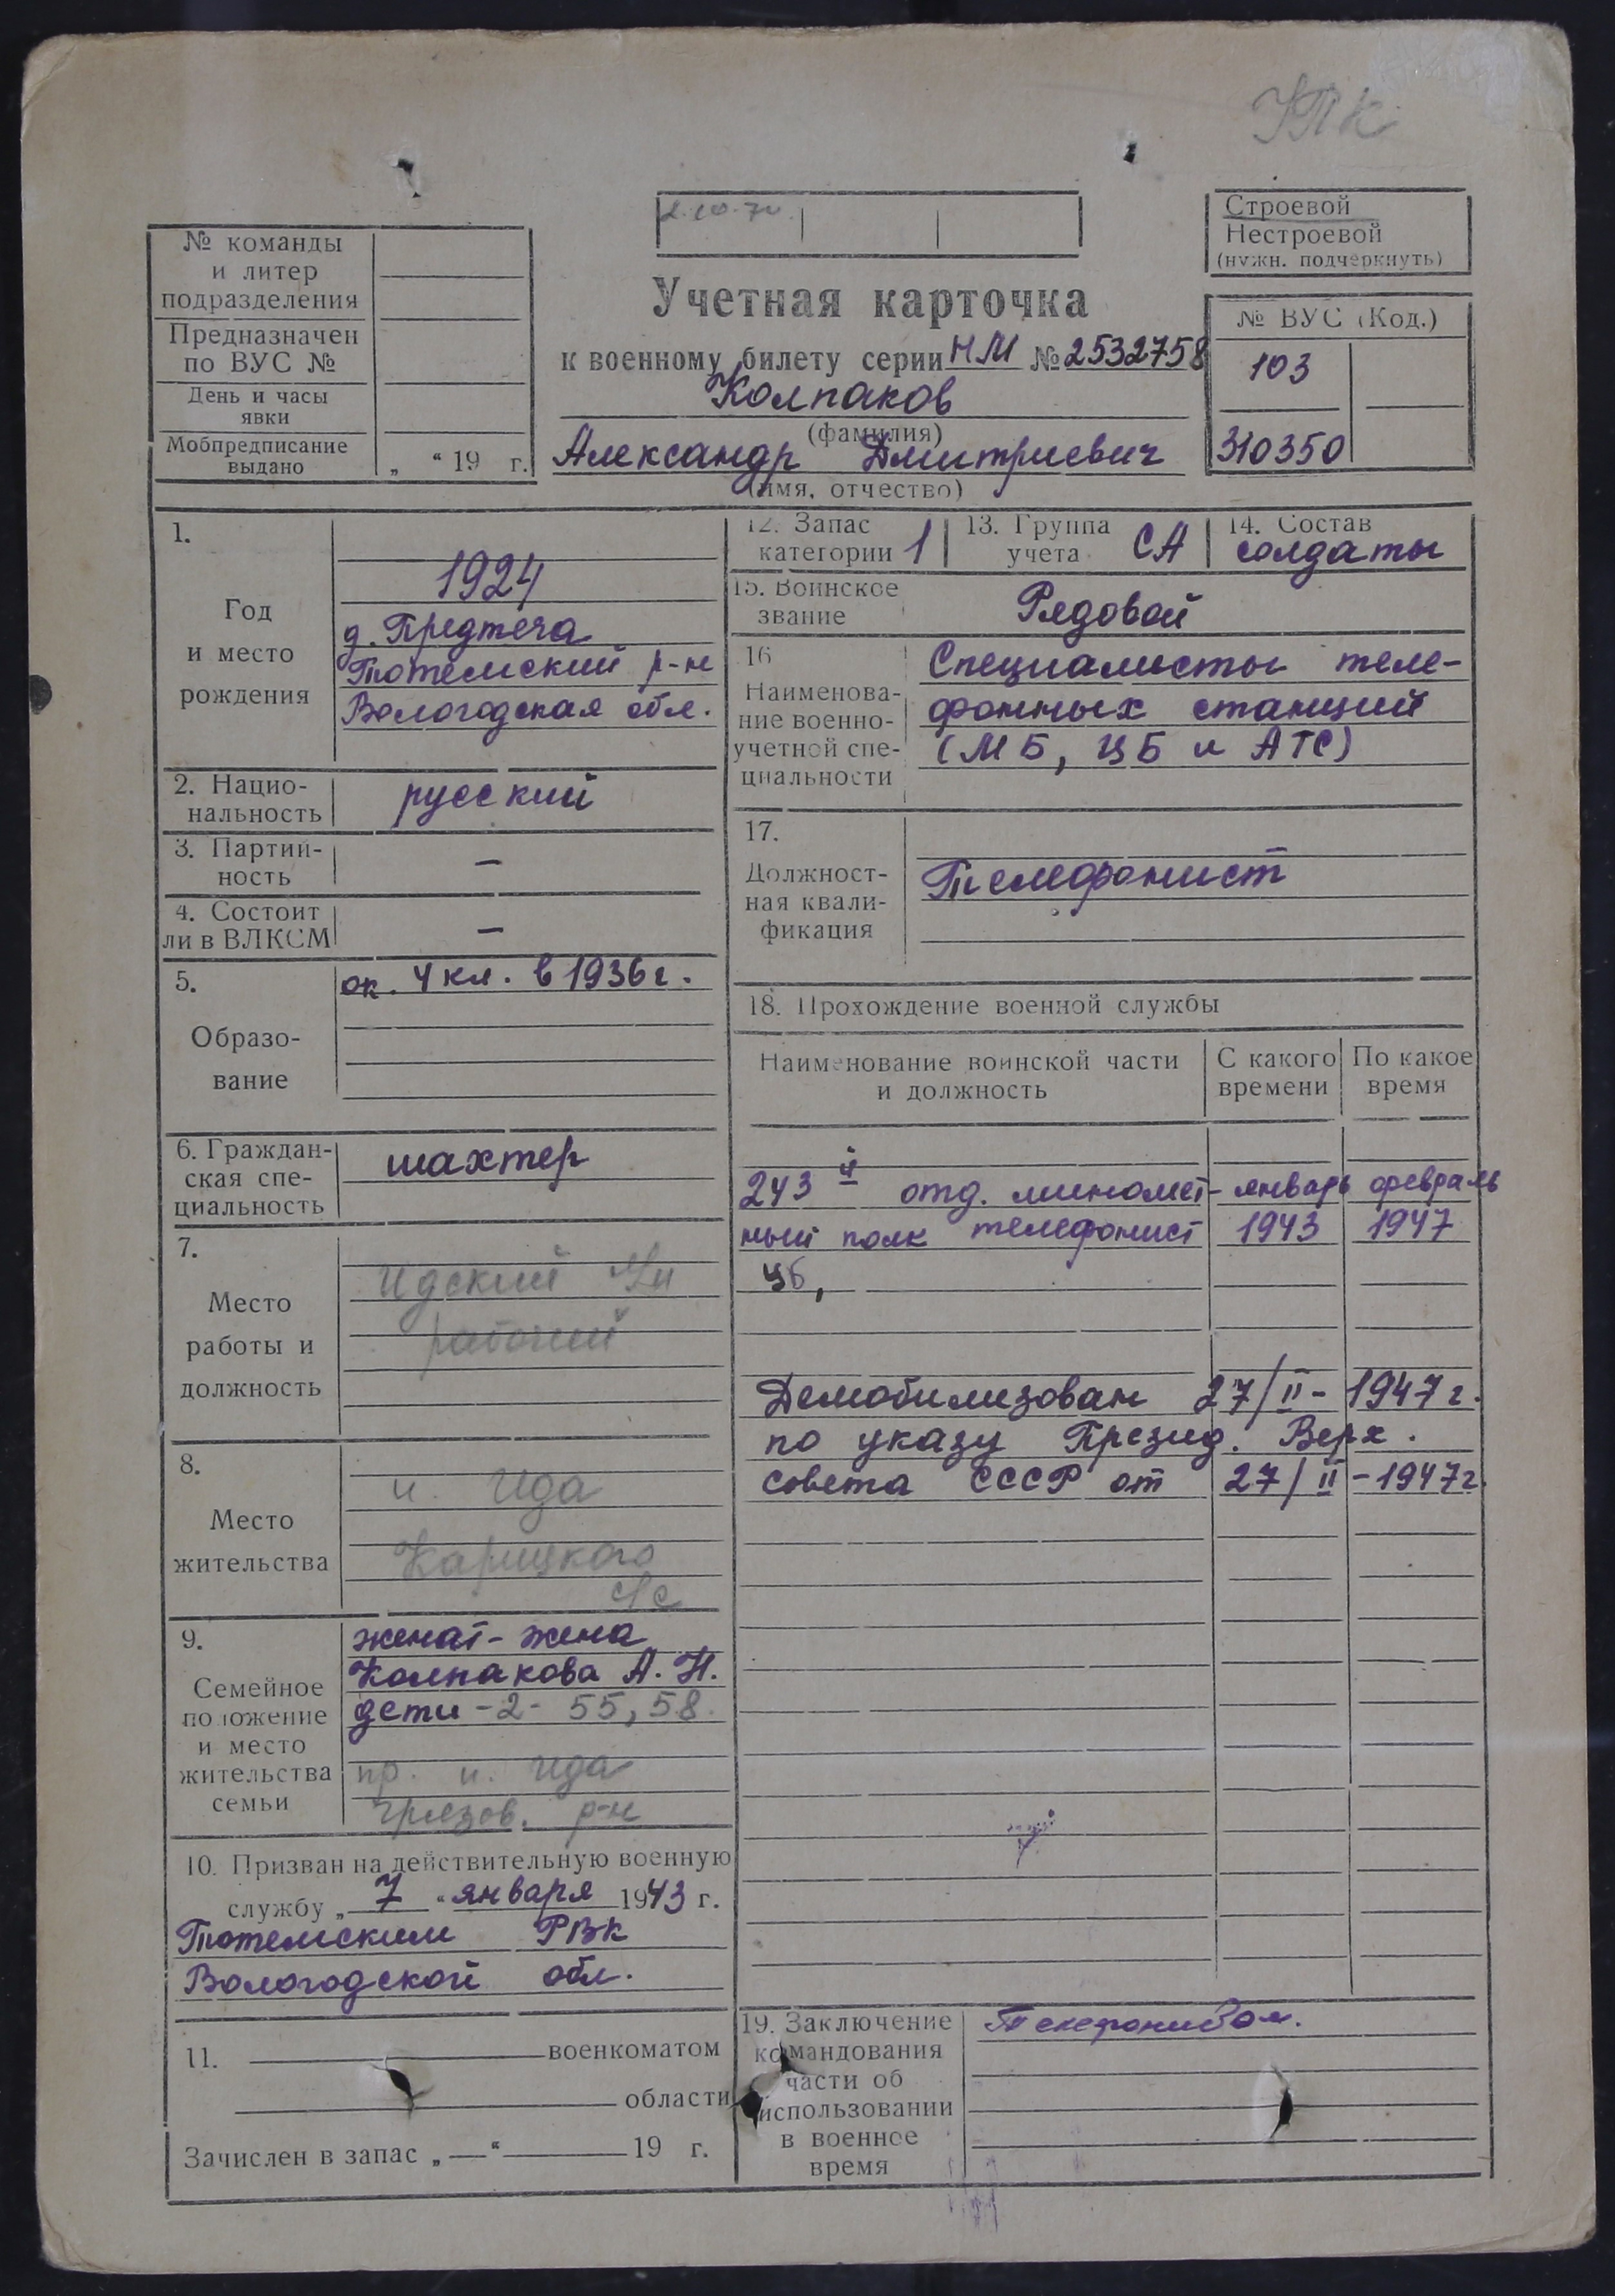 УПК
2.10.70.
Строевой
Нестроевой
(нужн. подчеркнуть)
№ команды
и литер
подразделения
Предназначен
по ВУС №
День и часы
явки
Мобпредписание
выдано „ “ 19 г.
Учетная карточка
к военному билету серии НМ № 2532758
Колпаков
(фамилия)
Александр Дмитриевич
(имя, отчество)
№ ВУС (Код.)
103
310350
1.
Год
и место
рождения
1924
д. Предтеча
Тотемский р-н
Вологодская обл.
2. Нацио-
нальность
русский
3. Партий-
ность
–
4. Состоит
ли в ВЛКСМ
–
5.
Образо-
вание
ок. 4 кл. в 1936 г.
6. Граждан-
ская спе-
циальность
шахтер
7.
Место
работы и
должность
Идский
рабочий
8.
Место
жительства
п. Ида
Карицкого
с/с
9.
Семейное
положение
и место
жительства
семьи
женат - жена
Колпакова А. Н.
дети - 2 - 55, 58.
пр. п. Ида
Грязов. р-н
10. Призван на действительную военную
службу „ 7 “ января 1943 г.
Тотемским РВК
Вологодской обл.
11. военкоматом
области
Зачислен в запас „ — “ 19 г.
12. Запас
категории 1
13. Группа
учета СА
14. Состав
солдаты
15. Воинское
звание
Рядовой
16
Наименова-
ние военно-
учетной спе-
циальности
Специалисты теле-
фонных станций
(МБ, ЦБ и АТС)
17.
Должност-
ная квали-
фикация
Телефонист
18. Прохождение военной службы
Наименование воинской части
и должность
С какого
времени
По какое
время
243 й отд. миномет- январь февраль
ный полк телефонист 1943 1947
ЦБ,
Демобилизован 27/II - 1947 г.
по указу Презид. Верх.
совета СССР от 27/II - 1947 г.
19. Заключение
командования
части об
использовании
в военное
время
Телефонистом.